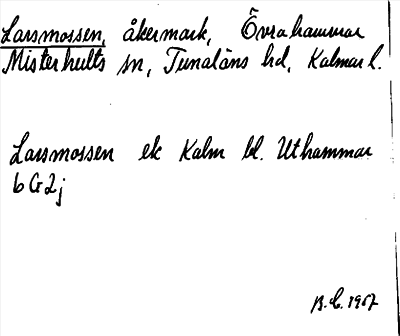 Larsmossen, åkermark, Övrahammar
Misterhults sn, Tunaläns hd, Kalmar l.
Larsmossen ek Kalm bl. Uthammar
6 G 2j
1967